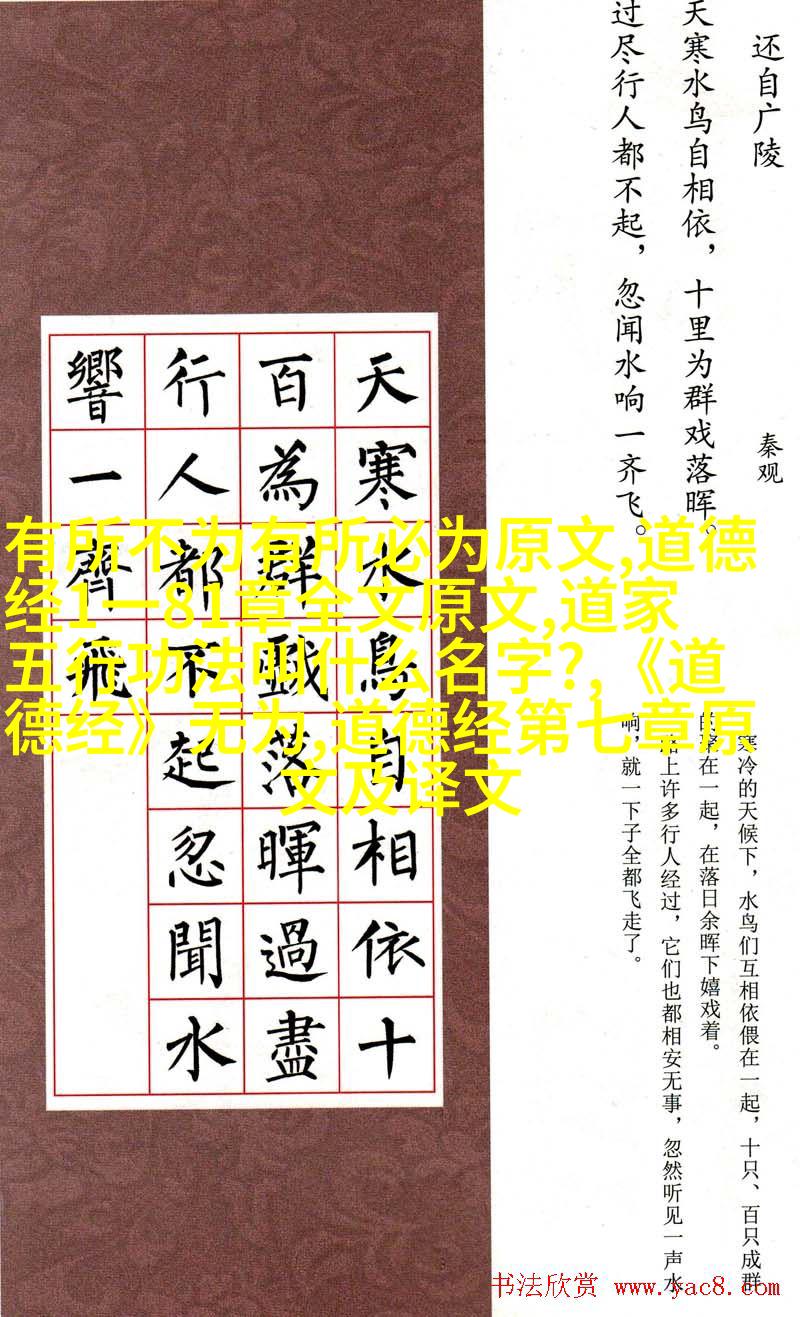 还自广陵
秦观
天寒水鸟自相依，十里为群戏落晖。
过尽行人都不起，忽闻水响一齐飞。
天寒水鸟自相依十
百為群戲落暉過盡
行人都不起忽聞水
響一齊飛
有所不为有所必为原文,道德
经1一81章全文原文,道家
五行功法叫什么名字?,《道
德经》无为,道德经第七章原
文及译文
寒冷的天候下，水鸟们互相依偎在一起，十只、百只成群
的聚在一起，在落日余晖下嬉戏着。
上许多行人经过，它们也都相安无事，忽然听见一声水
响，就一下子全都飞走了。
书法欣赏 www.yac8.com